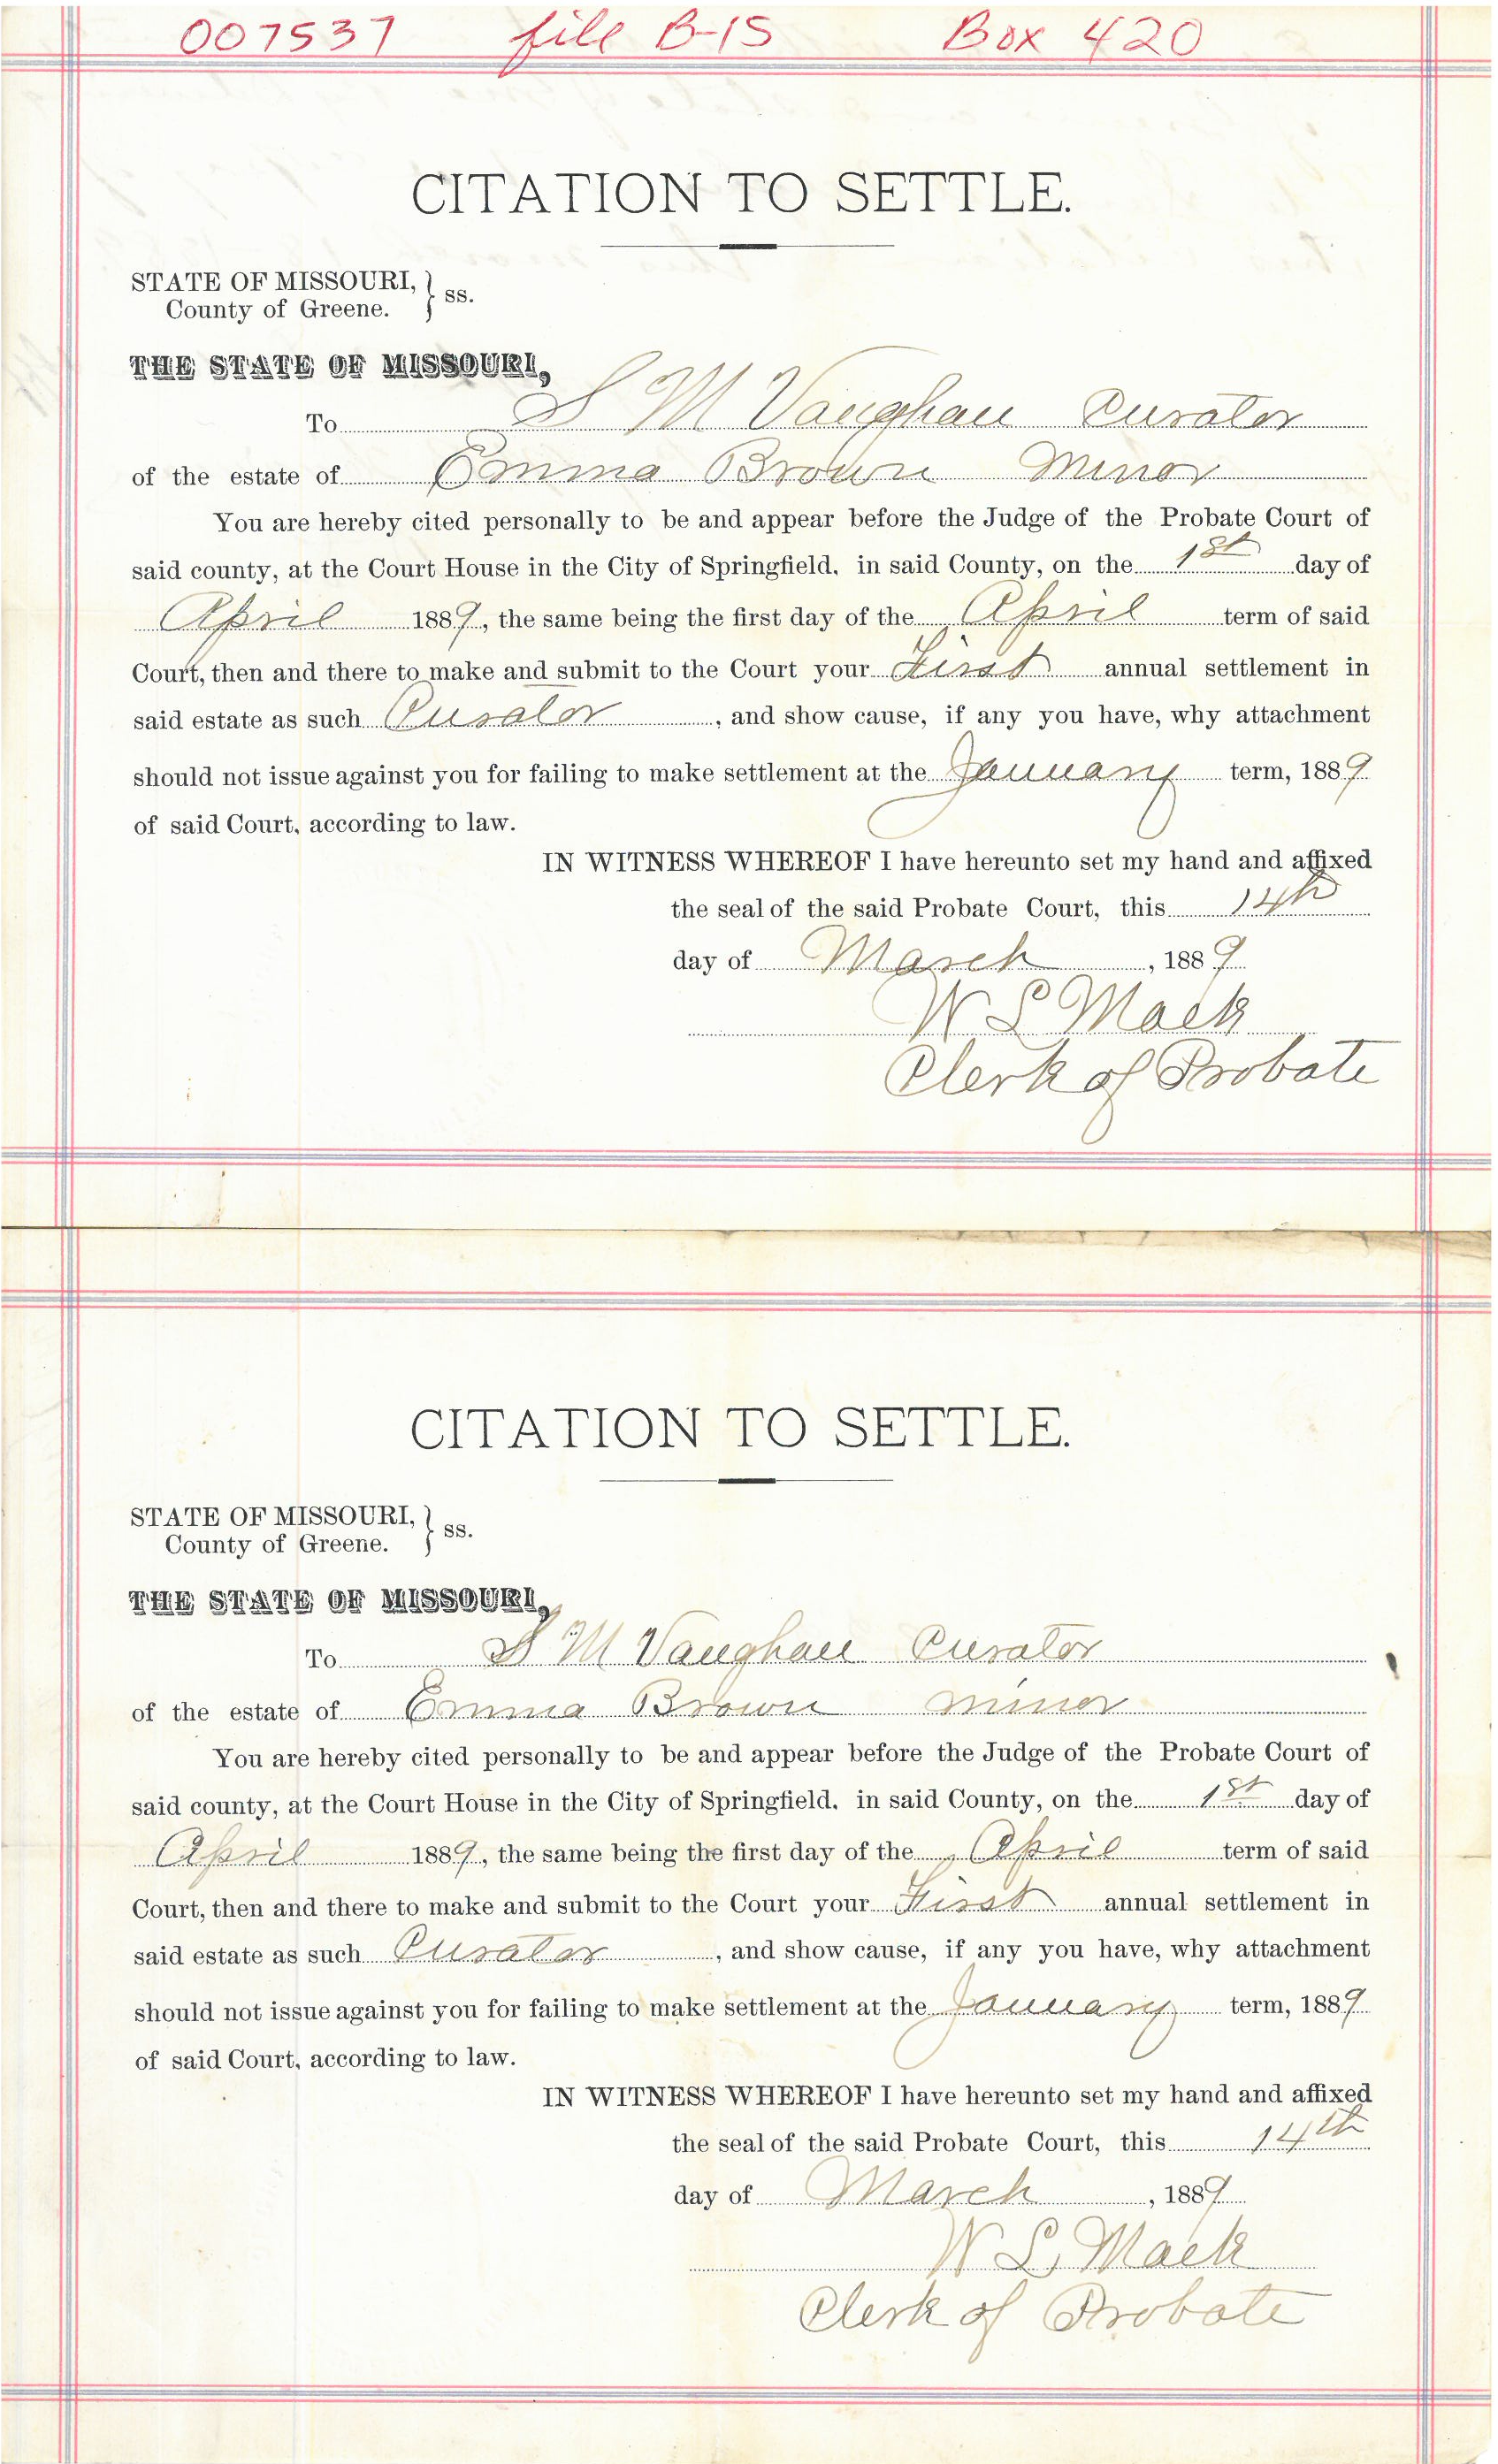 007537 file B-15 Box 420
CITATION TO SETTLE.
STATE OF MISSOURI, } ss.
County of Greene.
THE STATE OF MISSOURI,
To S M Vaughan Curator
of the estate of Emma Brown Minor
You are hereby cited personally to be and appear before the Judge of the Probate Court of
said county, at the Court House in the City of Springfield, in said County, on the 1st day of
April 1889, the same being the first day of the April term of said
Court, then and there to make and submit to the Court your First annual settlement in
said estate as such Curator, and show cause, if any you have, why attachment
should not issue against you for failing to make settlement at the January term, 1889
of said Court, according to law.
IN WITNESS WHEREOF I have hereunto set my hand and affixed
the seal of the said Probate Court, this 14th
day of March, 1889
W L Mack
Clerk of Probate
CITATION TO SETTLE.
STATE OF MISSOURI, } ss.
County of Greene.
THE STATE OF MISSOURI,
To S M Vaughan Curator
of the estate of Emma Brown minor
You are hereby cited personally to be and appear before the Judge of the Probate Court of
said county, at the Court House in the City of Springfield, in said County, on the 1st day of
April 1889, the same being the first day of the April term of said
Court, then and there to make and submit to the Court your First annual settlement in
said estate as such Curator, and show cause, if any you have, why attachment
should not issue against you for failing to make settlement at the January term, 1889
of said Court, according to law.
IN WITNESS WHEREOF I have hereunto set my hand and affixed
the seal of the said Probate Court, this 14th
day of March, 1889
W L Mack
Clerk of Probate